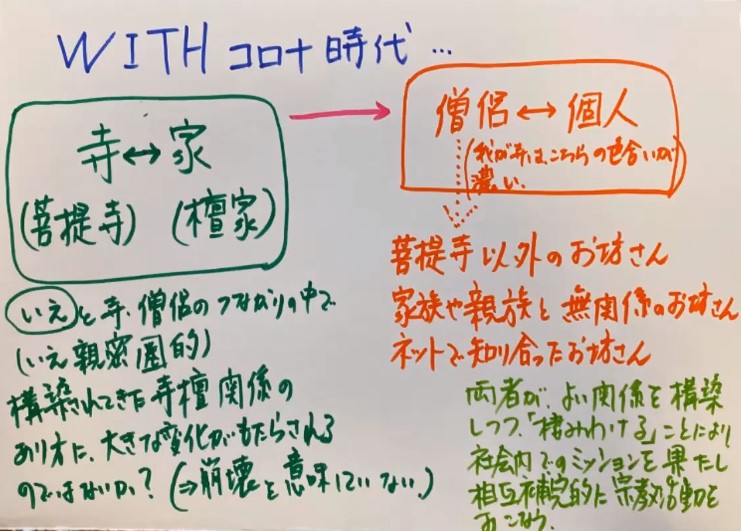 WITHコロナ時代…
寺↔家
(菩提寺) (檀家)
いえと寺、僧侶のつながりの中で
(いえ親密圏的)
構築されてきた寺檀関係の
あり方に、大きな変化がもたらされる
のではないか？(⇒崩壊を意味していない。)
→
僧侶↔個人
(我が寺は、こちらの色合いが
濃い。)
菩提寺以外のお坊さん
家族や親族と無関係のお坊さん
ネットで知り合ったお坊さん
両者が、よい関係を構築
しつつ、「棲みわける」ことにより
社会内でのミッションを果たし
相互補完的に宗教活動を
おこなう。